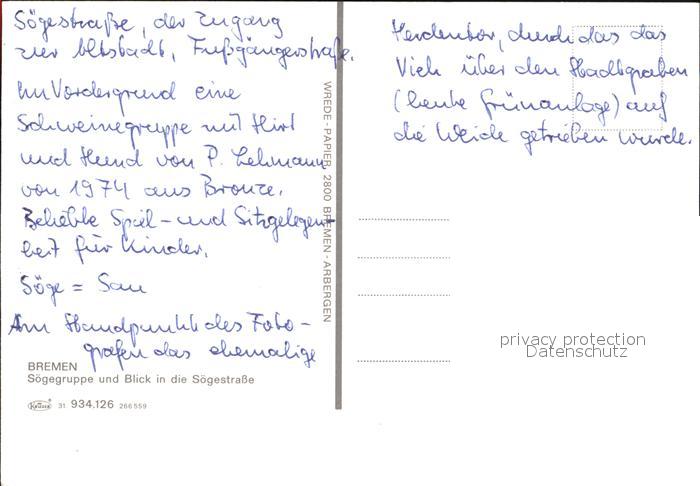 Sögestraße, der Zugang
zur Altstadt, Fußgängerstraße.
Im Vordergrund eine
Schweinegruppe mit Hirt
und Hund von P. Lehmann
von 1974 aus Bronze.
Beliebte Spiel- und Sitzgelegen-
heit für Kinder.
Söge = Sau
Am Standpunkt des Foto-
grafen das ehemalige
Herdentor, durch das das
Vieh über den Stadtgraben
(heute Grünanlage) auf
die Weide getrieben wurde.
WREDE-PAPIER, 2800 BREMEN-ARBERGEN
BREMEN
Sögegruppe und Blick in die Sögestraße
31 934.126 266559
privacy protection
Datenschutz